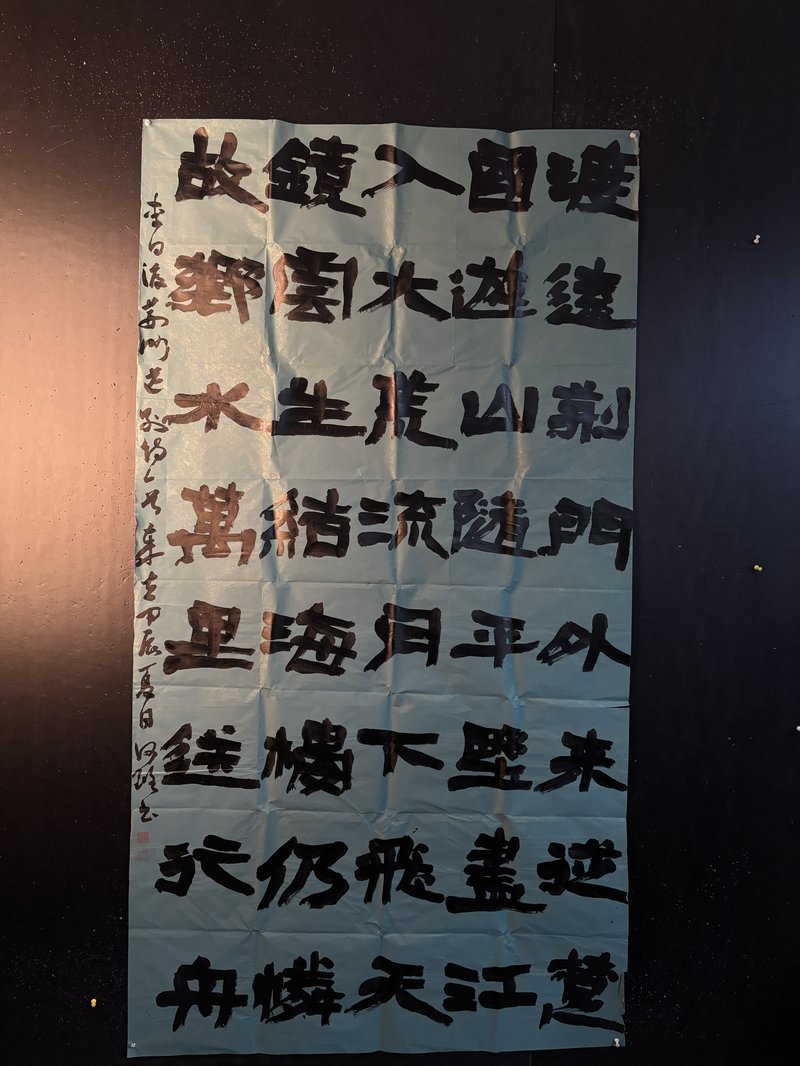 渡遠荆門外来從楚
國遊山隨平墅盡江
入大荒流月下飛天
鏡雲生結海樓仍憐
故鄉水萬里送行舟
李白渡荊門送別詩一首 歲在甲辰夏日 书